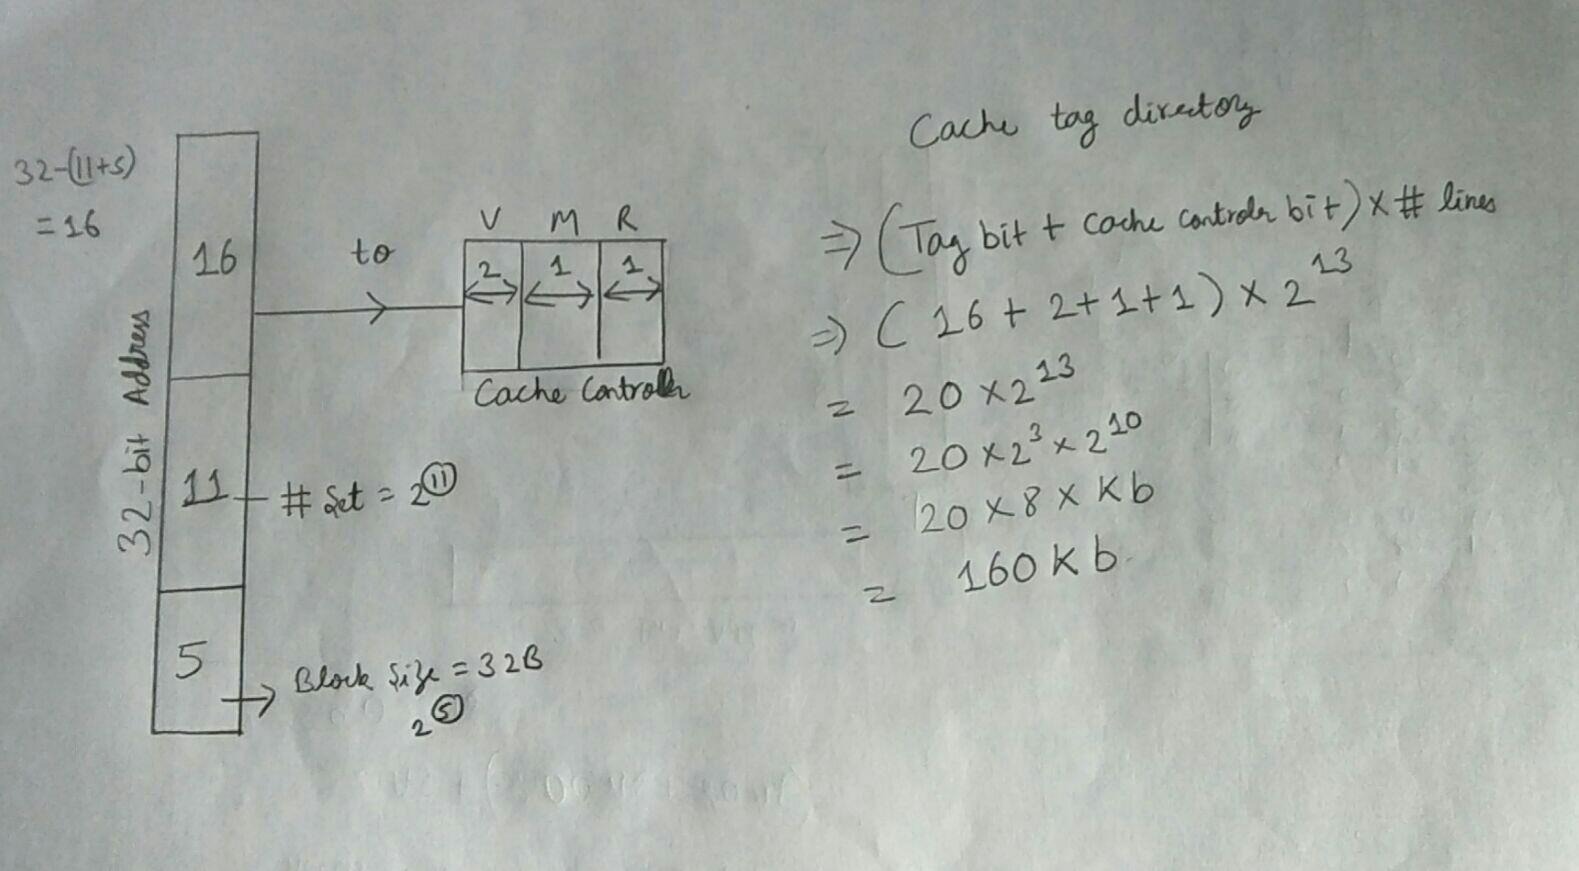 32-(11+5)
= 16
16
to
V M R
2 1 1
Cache Controller
32-bit Address
11
# Set = 2^11
5
Block Size = 32B
2^5
Cache tag directory
⇒ (Tag bit + cache controlr bit) × # lines
⇒ ( 16 + 2+1+1 ) × 2^13
= 20 × 2^13
= 20 × 2^3 × 2^10
= 20 × 8 × Kb
= 160 Kb.